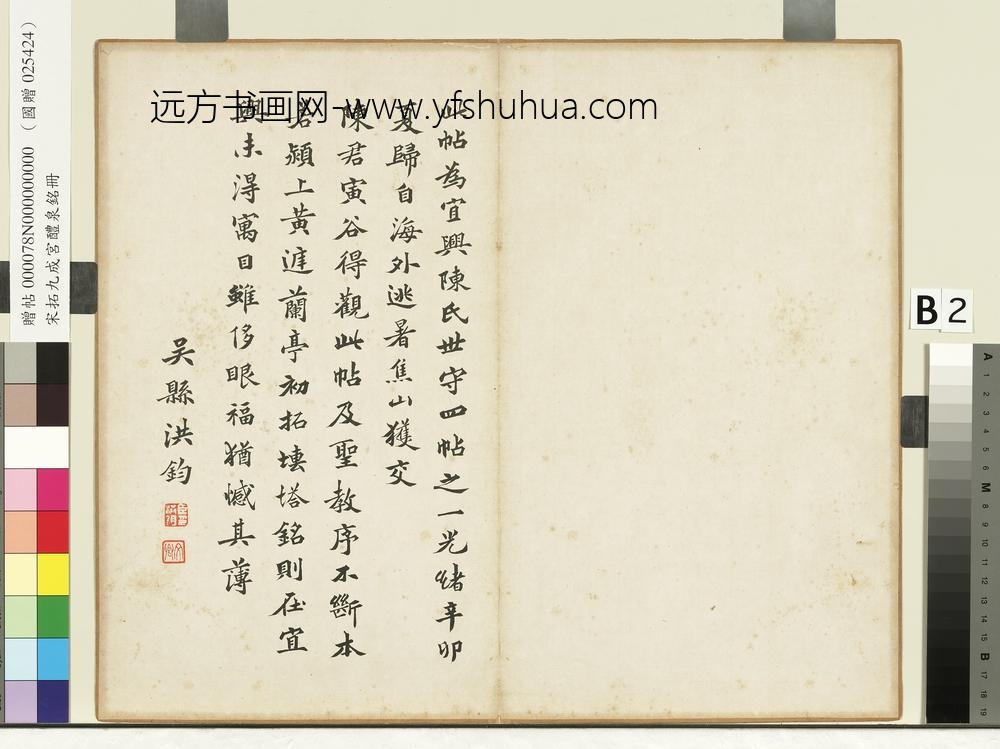 远方书画网-www.yfshuhua.com
此帖為宜興陳氏世守四帖之一光緒辛卯
夏歸自海外逃暑焦山獲交
陳君寅谷得觀此帖及聖教序不斷本
若潁上黃庭蘭亭初拓塼塔銘則在宜
興未得寓目雖侈眼福猶憾其薄
吴縣洪鈞
贈帖 000078N000000000 （ 國贈 025424）
宋拓九成宮醴泉銘冊
B 2
A 1 2 3 4 5 6 M 8 9 10 11 12 13 14 15 B 17 18 19